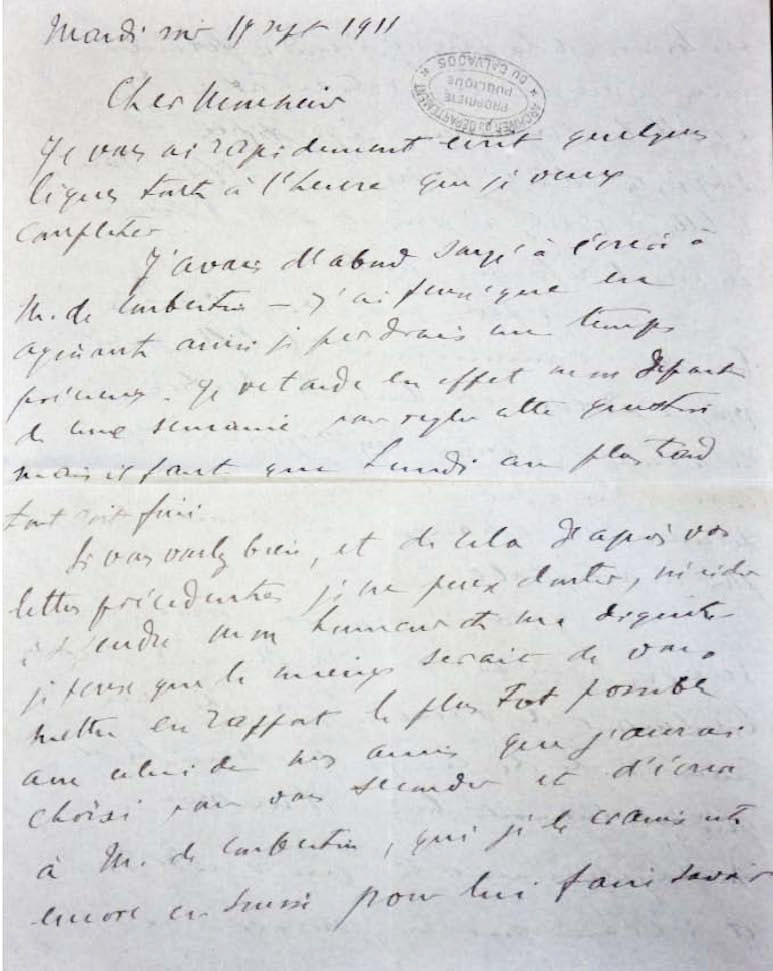 Mardi soir 19 sept 1911
ARCHIVES DU DÉPARTEMENT
DU CALVADOS
PROPRIÉTÉ
PUBLIQUE
Cher Monsieur
Je vous ai rapidement écrit quelques
lignes tout à l'heure que je veux
compléter
J'avais d'abord songé à écrire à
M. de Coubertin — J'ai pensé que en
agissant ainsi je perdrais un temps
précieux. Je retarde en effet mon départ
de une semaine pour régler cette question
mais il faut que Lundi au plus tard
tout soit fini
Si vous voulez bien, et de cela d'après vos
lettres précédentes je ne peux douter, m'aider
à défendre mon honneur et ma dignité
je pense que le mieux serait de vous
mettre en rapport le plus tot possible
avec celui de mes amis que j'aurai
choisi pour vous seconder et d'écrire
à M. de Coubertin, qui je le crains est
encore en Suisse pour lui faire savoir